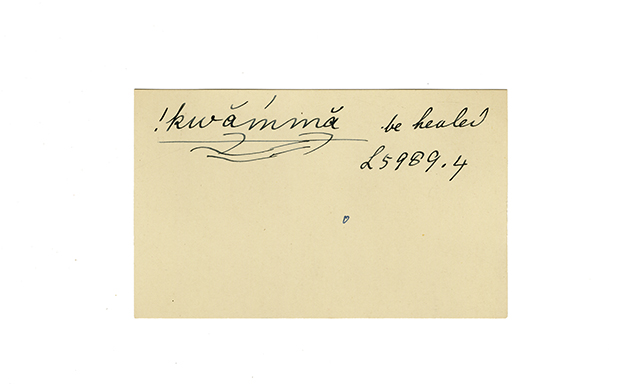 !kwắmmă be healed
L5989.4